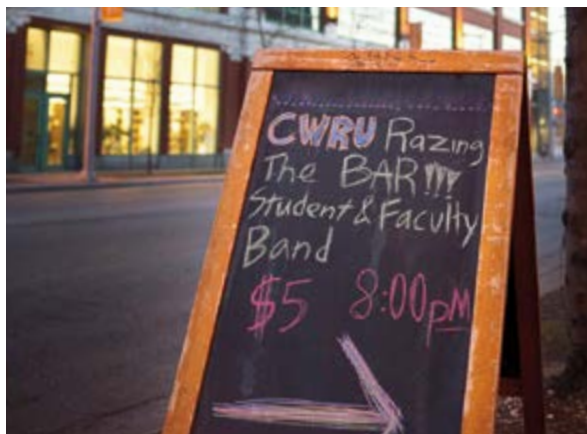 CWRU Razing
The BAR!!!
Student & Faculty
Band
$5 8:00pM